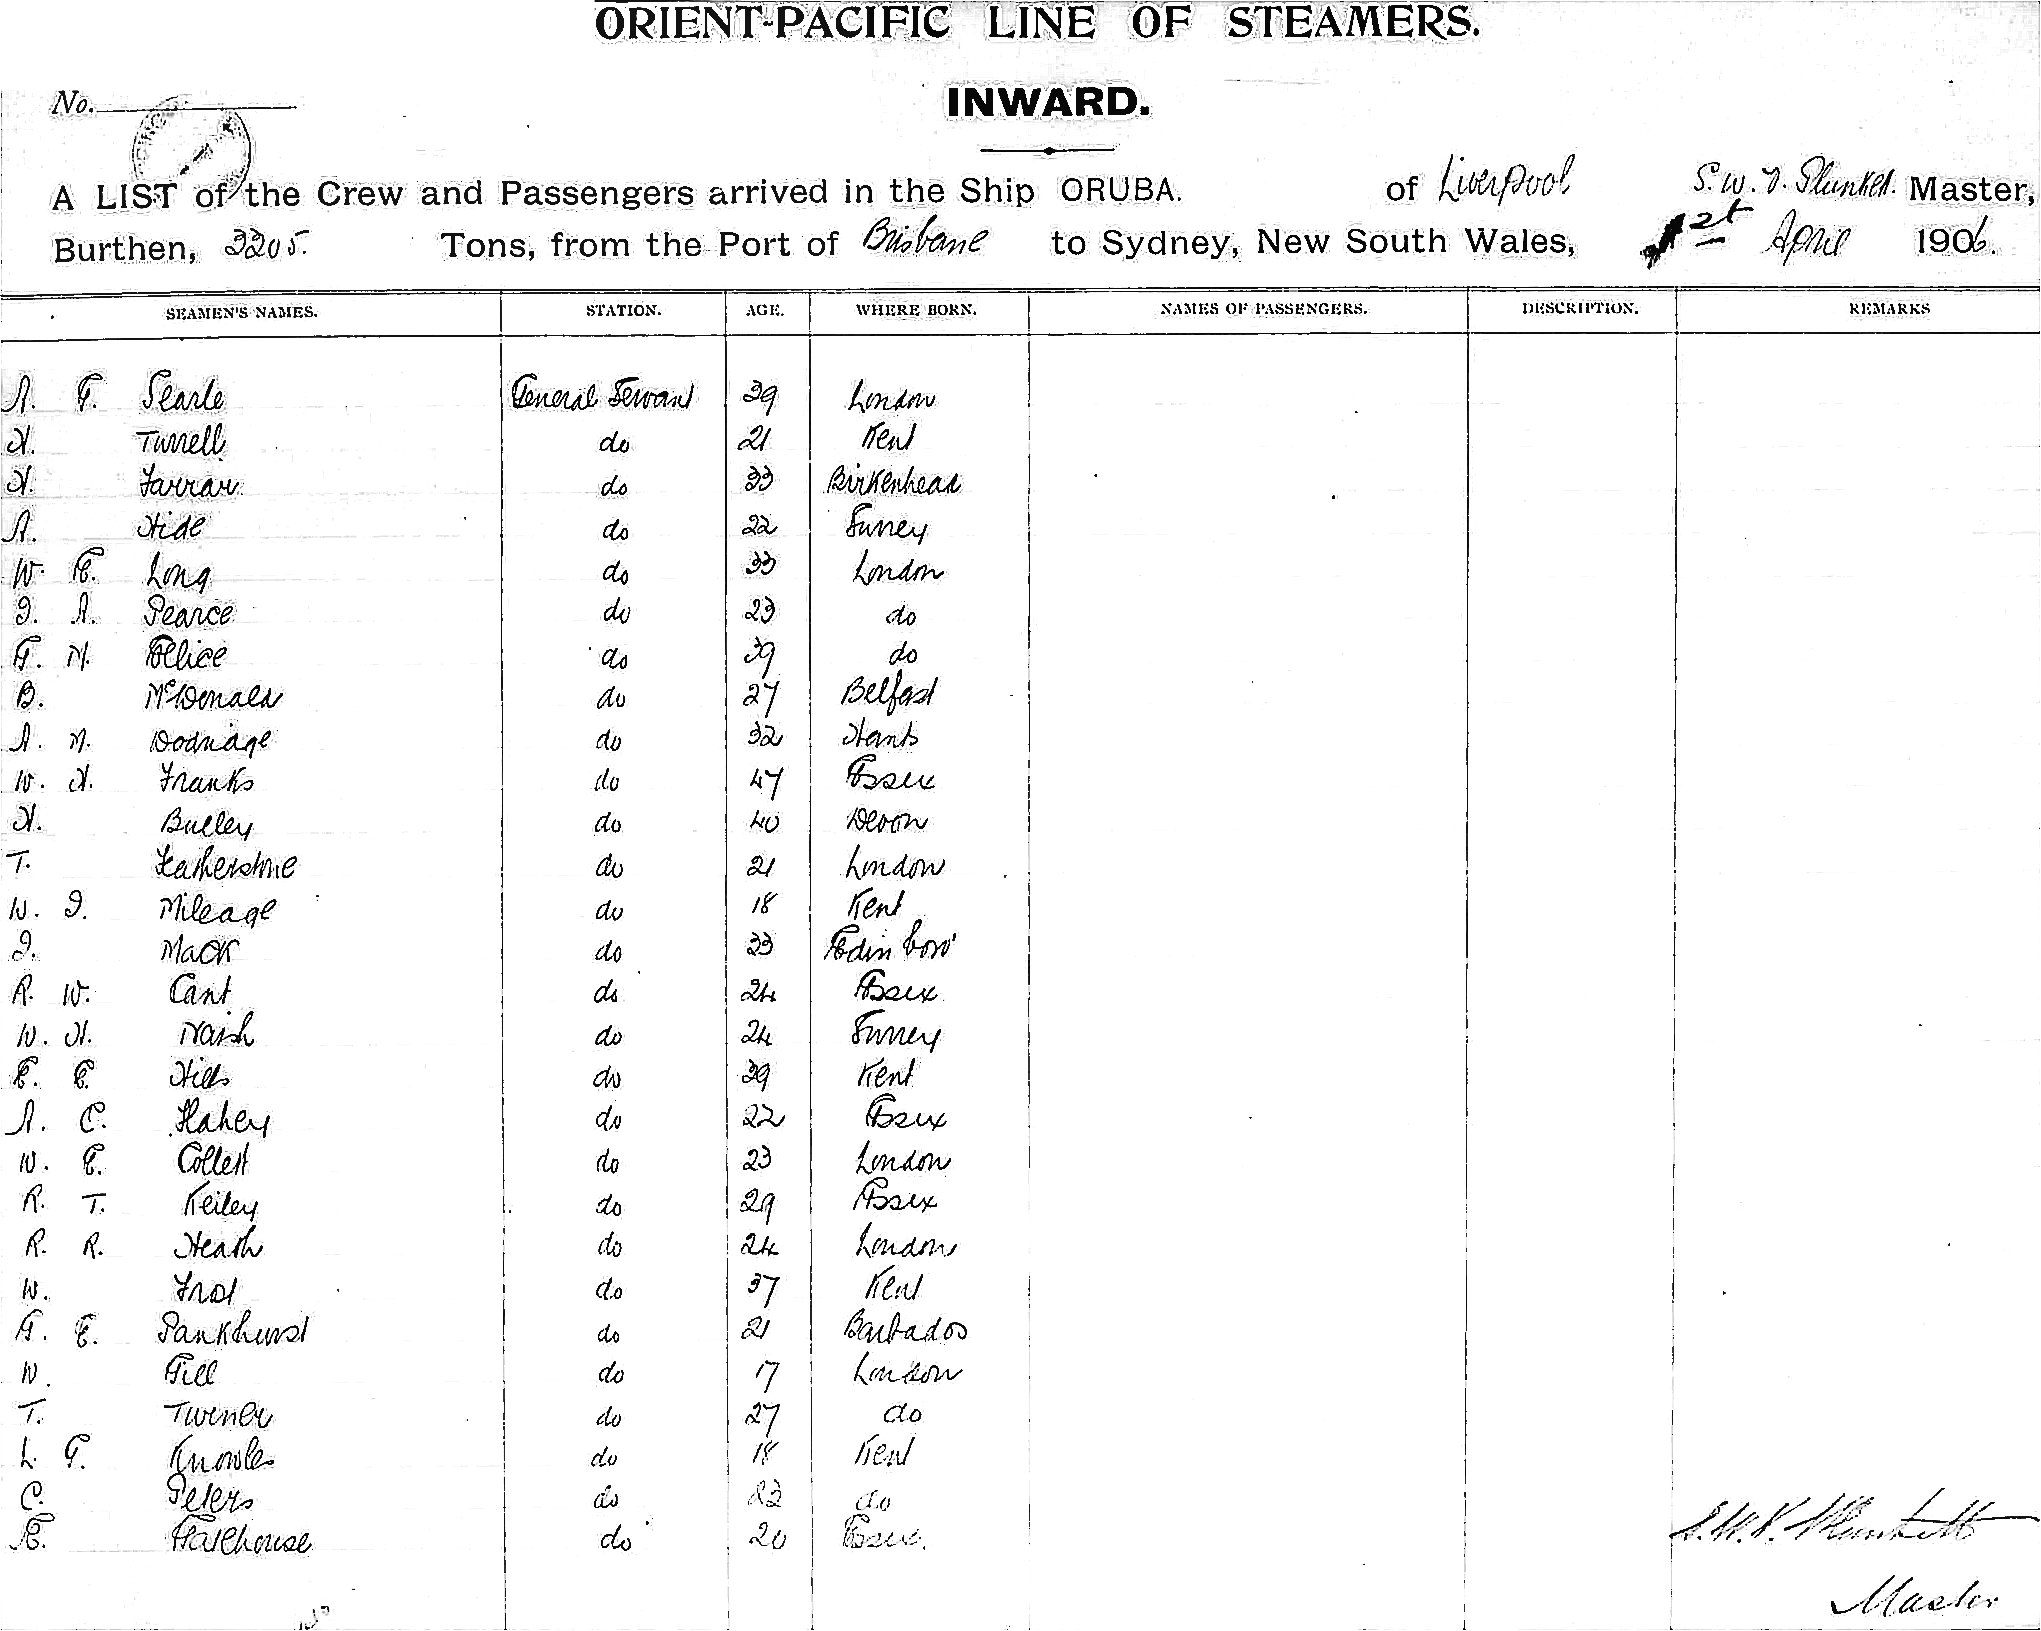 ORIENT-PACIFIC LINE OF STEAMERS.
No.
INWARD.
A LIST of the Crew and Passengers arrived in the Ship ORUBA. of Liverpool S. W. Plunket. Master,
Burthen, 3205. Tons, from the Port of Brisbane to Sydney, New South Wales, April 1906.
SEAMEN'S NAMES. STATION. AGE. WHERE BORN. NAMES OF PASSENGERS. DESCRIPTION. REMARKS
A. G. Searle General Servant 39 London
H. Turrell do 21 Kent
H. Farrar do 33 Birkenhead
A. Hide do 22 Surrey
W. E. Long do 33 London
J. A. Pearce do 23 do
G. H. Ellice do 39 do
B. McDonald do 27 Belfast
A. H. Dodnage do 32 Hants
W. H. Franks do 47 Essex
H. Bulley do 40 Devon
T. Featherstone do 21 London
W. J. Mileage do 18 Kent
J. Mack do 33 Edin boro'
R. W. Cant do 24 Essex
W. H. Naish do 24 Surrey
E. E. Hills do 39 Kent
A. C. do 22 Essex
W. E. Collett do 23 London
R. T. Keiley do 29 Essex
R. R. Heath do 24 London
W. Frost do 37 Kent
G. E. Pankhurst do 21 Barbados
W. Gill do 17 London
T. Turner do 27 do
L. G. Knowles do 18 Kent
C. Peters do 22 do
E. do 20 Essex.
Plunkett
Master